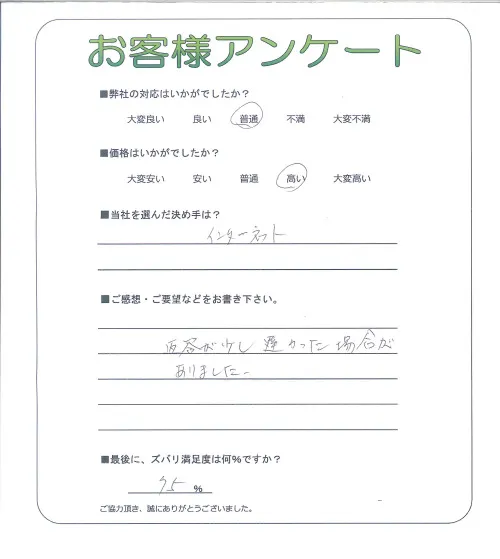 お客様アンケート
■弊社の対応はいかがでしたか？
大変良い 良い 普通 不満 大変不満
■価格はいかがでしたか？
大変安い 安い 普通 高い 大変高い
■当社を選んだ決め手は？
インターネット
■ご感想・ご要望などをお書き下さい。
返答が少し遅かった場合が
ありました。
■最後に、ズバリ満足度は何%ですか？
75 %
ご協力頂き、誠にありがとうございました。